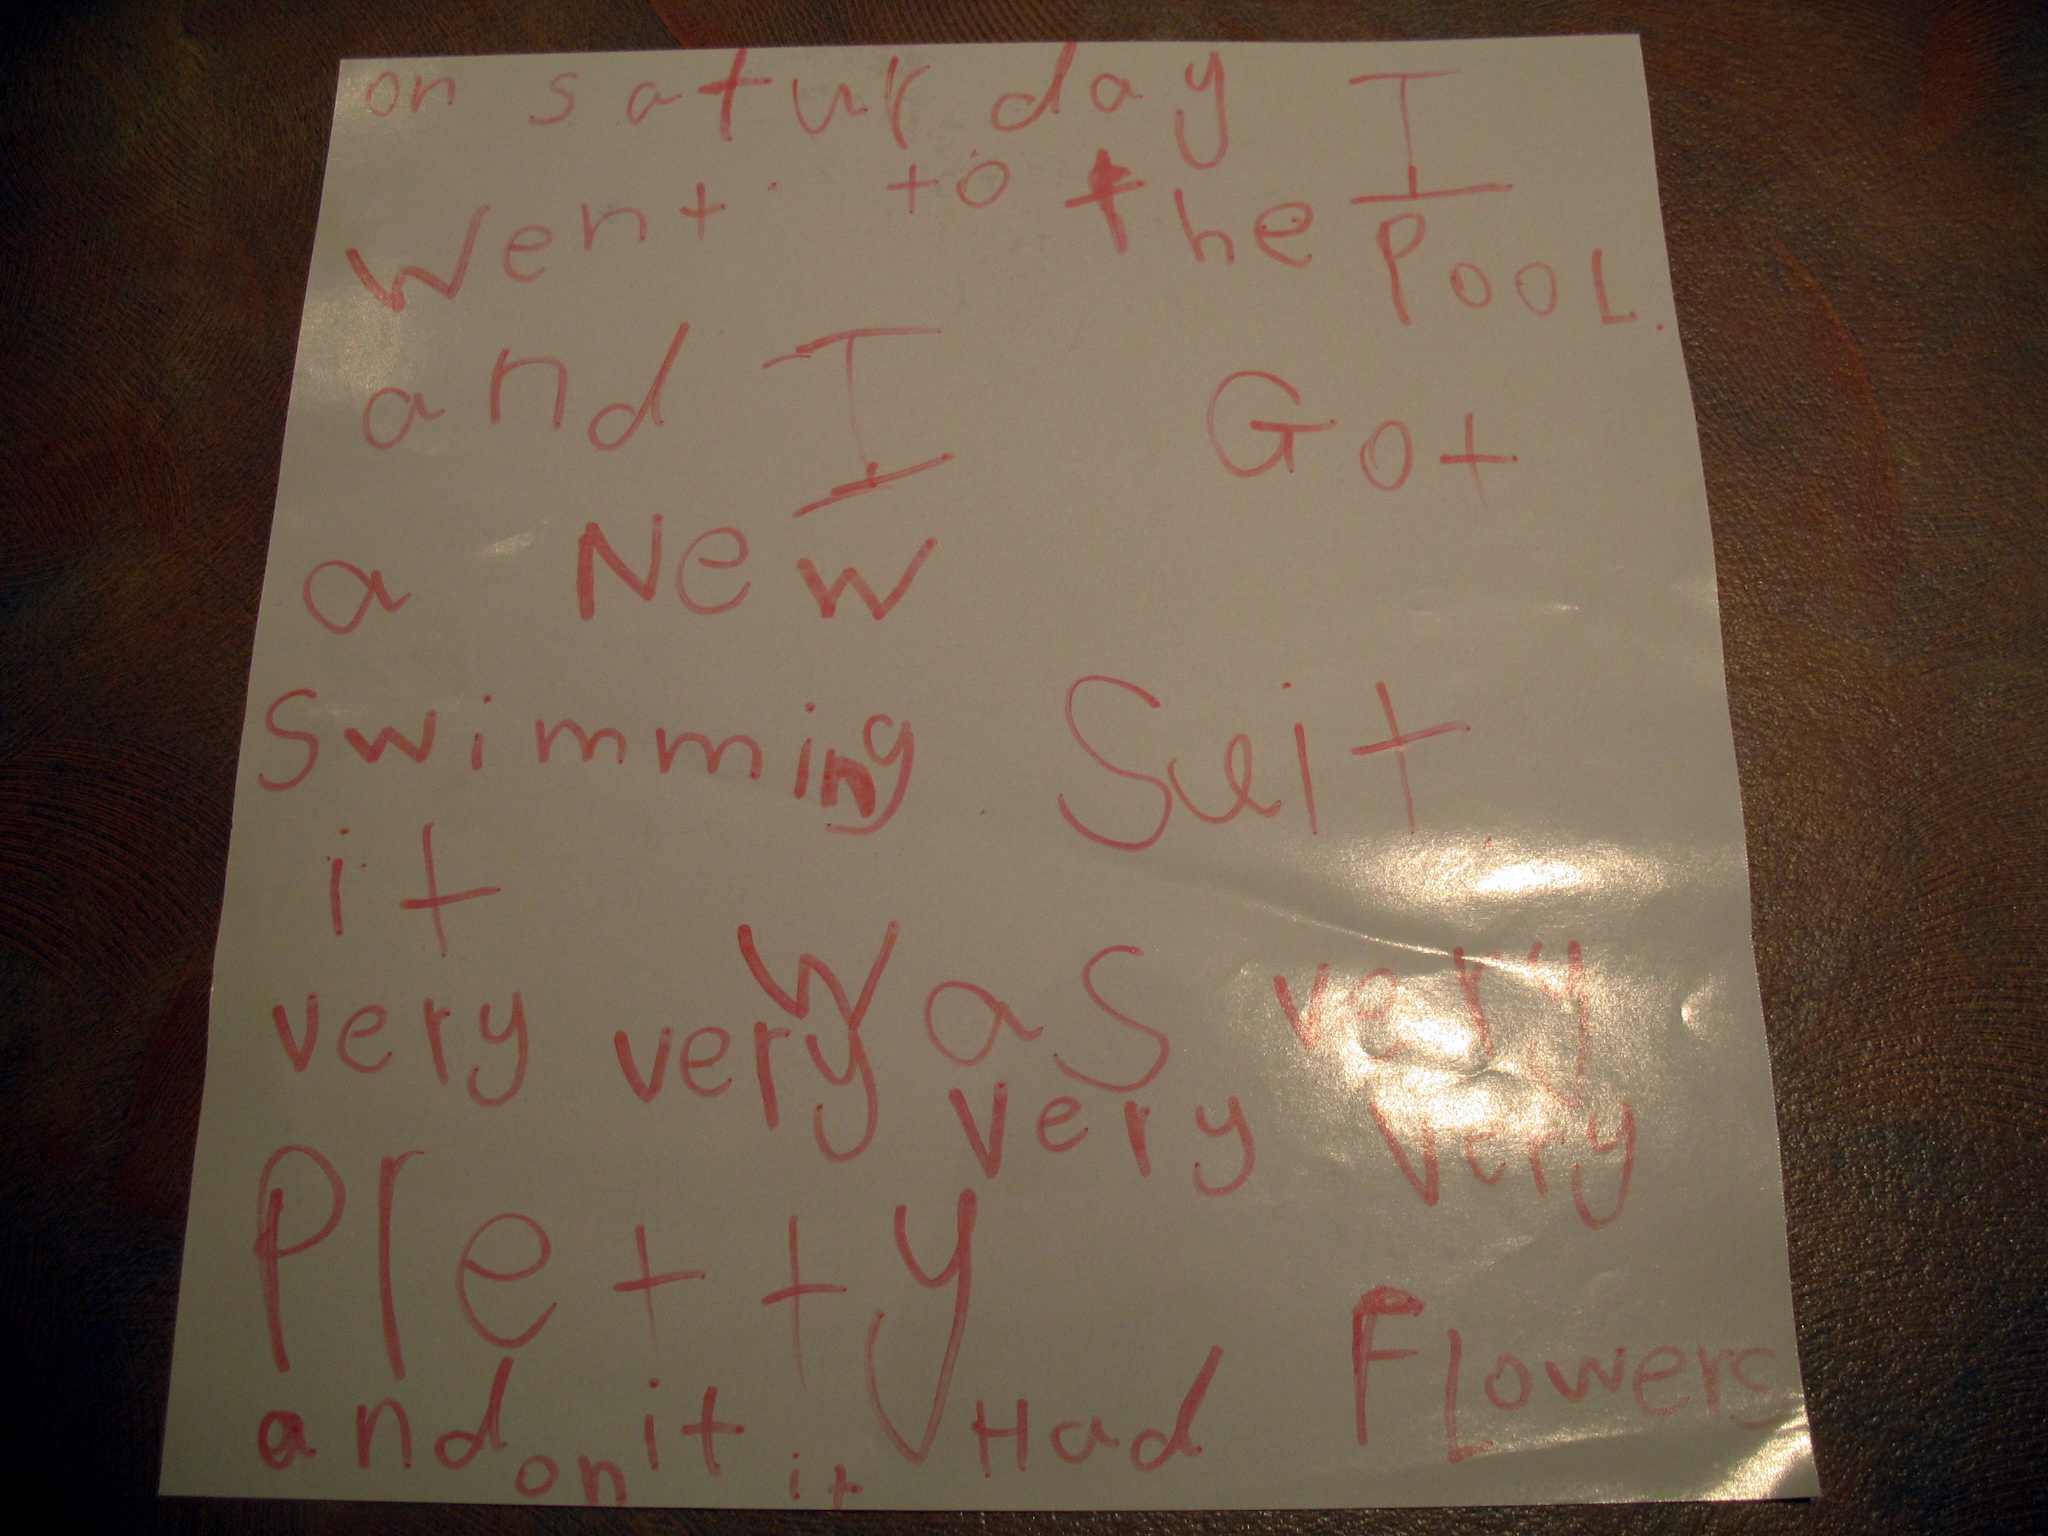 on saturday I
went to the POOL.
and I Got
a New
Swimming Suit
it was very
very very very very
Pretty
and on it it Had Flowers